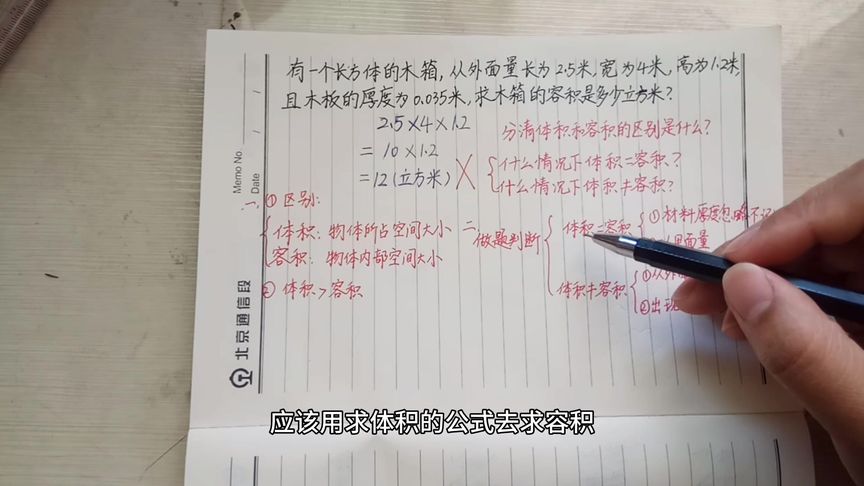 有一个长方体的木箱,从外面量长为2.5米,宽为4米,高为1.2米,
且木板的厚度为0.035米,求木箱的容积是多少立方米?
2.5×4×1.2
=10×1.2
=12(立方米)
×
分清体积和容积的区别是什么?
什么情况下体积=容积?
什么情况下体积≠容积?
一、①区别:
体积:物体所占空间大小
容积:物体内部空间大小
② 体积>容积
二、做题判断
体积=容积
①材料厚度忽略不记
里面量
体积≠容积
①从外
②出现
Memo No.
Date / /
北京通信段
应该用求体积的公式去求容积